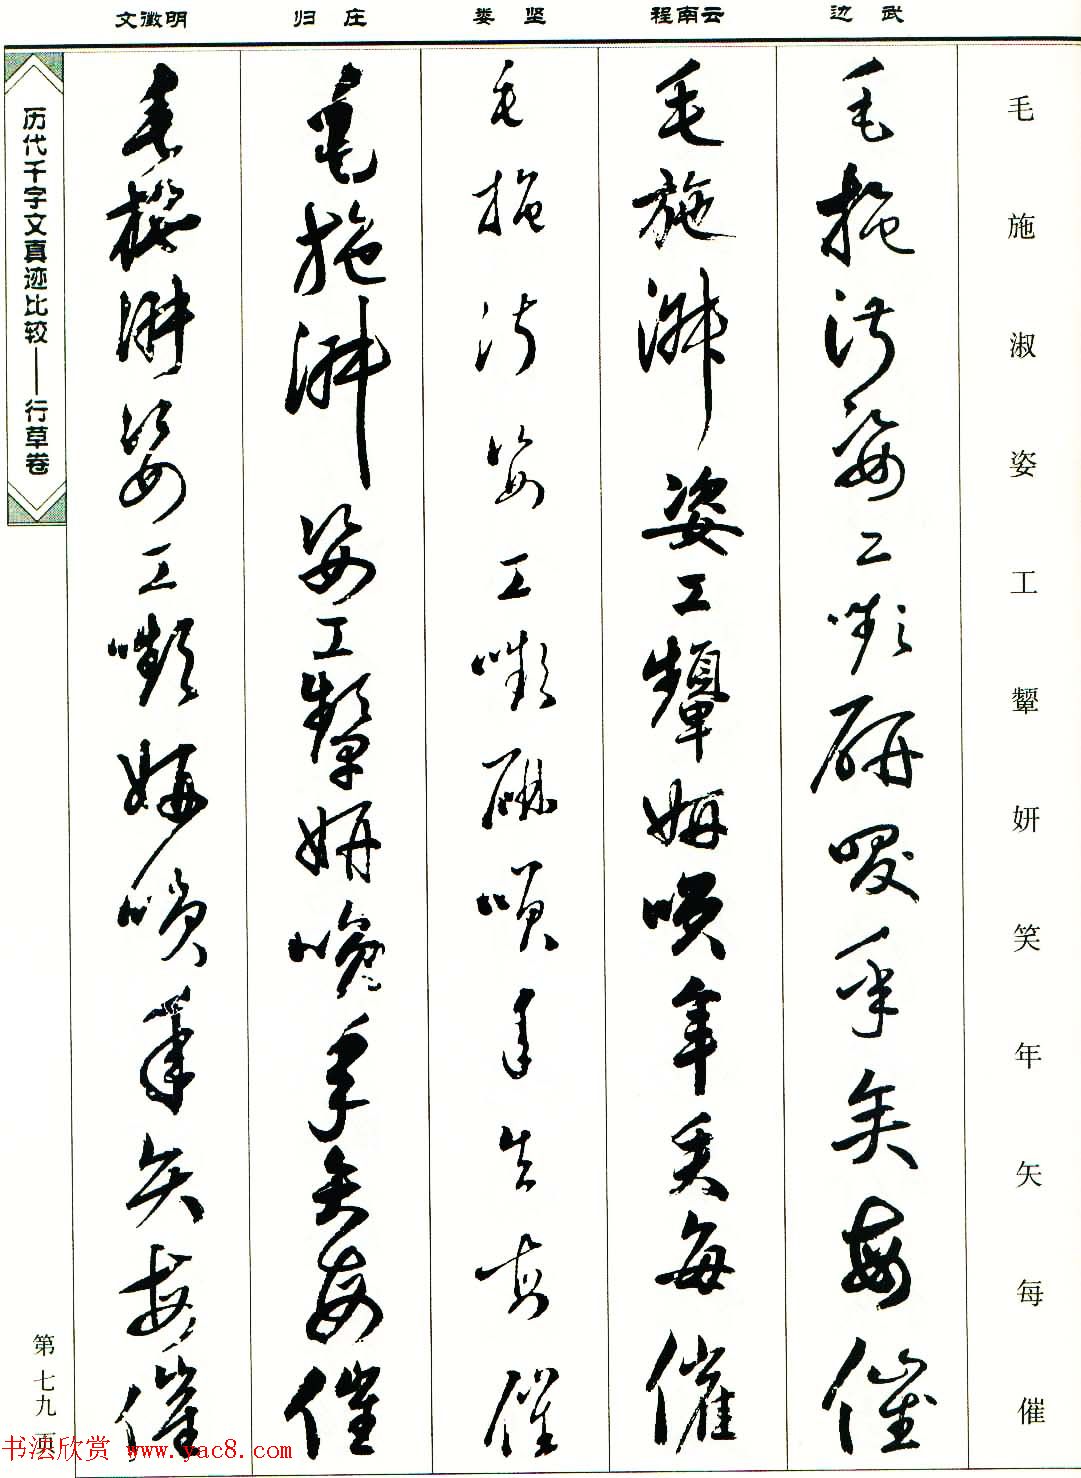 文徵明 归庄 娄坚 程南云 边武
毛施淑姿工颦妍笑年矢每催
毛施淑姿工嚬研笑年矢每催
毛施淑姿工颦妍笑年矢每催
毛施淑姿工嚬妍笑年矢每催
毛施淑姿工颦妍笑年矢每催
毛施淑姿工嚬妍笑年矢每催
历代千字文真迹比较——行草卷
第七九页
书法欣赏 www.yac8.com